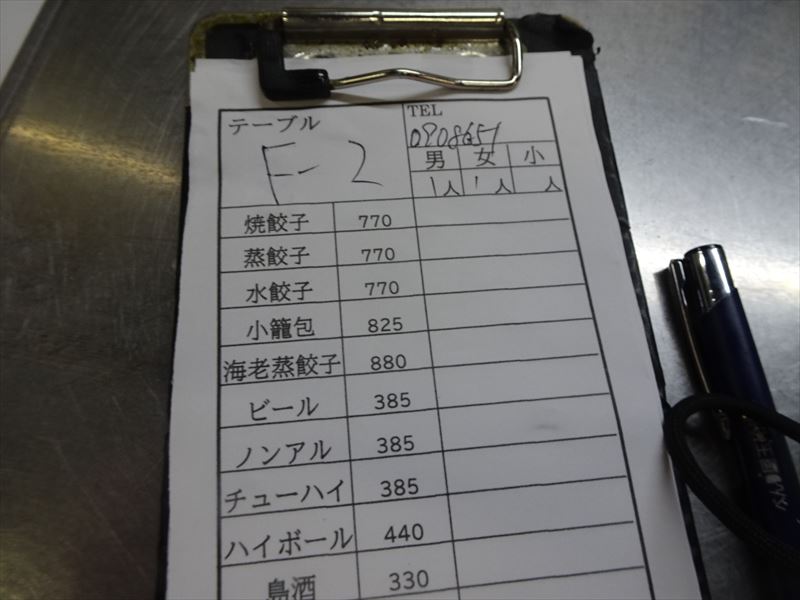 テーブル
TEL
F-2
0908651
男 女 小
1人 1人 人
焼餃子 770
蒸餃子 770
水餃子 770
小籠包 825
海老蒸餃子 880
ビール 385
ノンアル 385
チューハイ 385
ハイボール 440
島酒 330